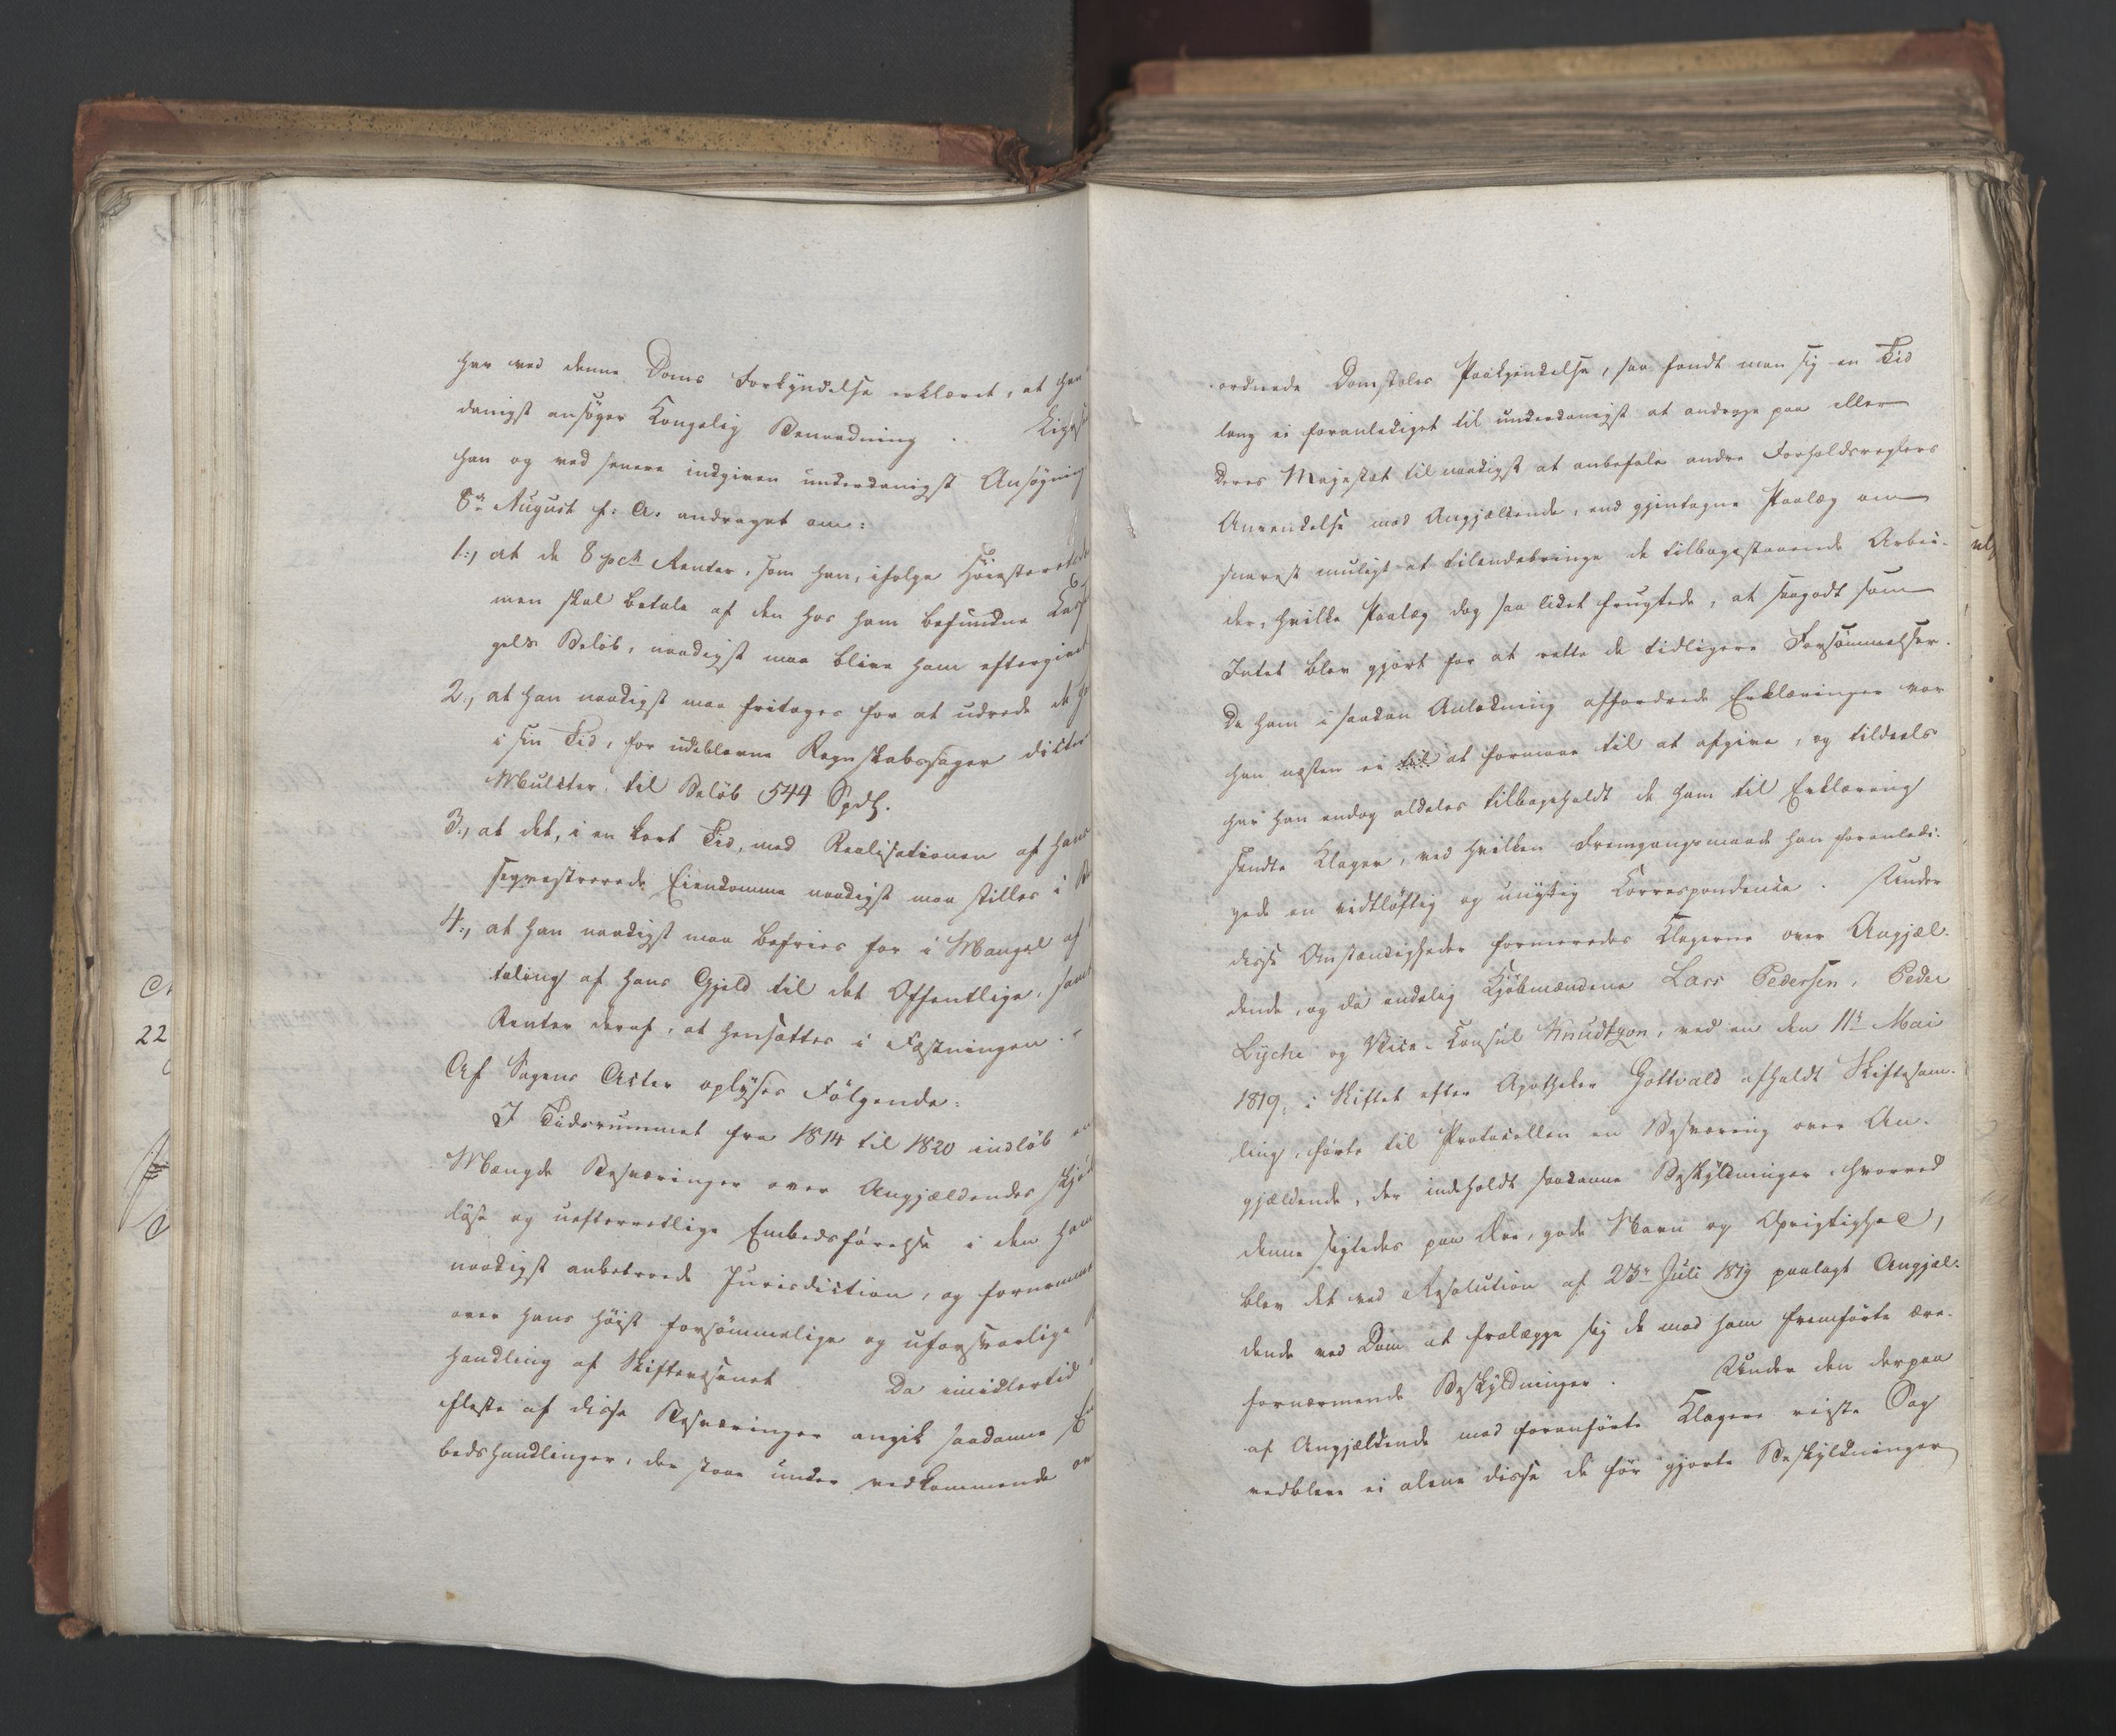 har ved denne Doms Forkyndelse erklæret, at han
danigst ansøger Kongelig Benaadning. Ligesaa
han og ved senere indgiven underdanigst Ansøgning
8de August f: A: andraget om:
1:, at de 8 pct Renter, som han, ifølge Høiesteretsdom-
men skal betale af den hos ham befundne Kasseman-
gels Beløb, naadigst maa blive ham eftergivet
2:, at han naadigst maa fritages for at udrede de
i sin Tid, for udeblevne Regnskabssager dicterede
Mulcter, til Beløb 544 Spd.
3:, at det, i en kort Tid, med Realisationen af hans
seqvestrerede Eiendomme naadigst maa stilles i
4:, at han naadigst maa befries for i Mangel af
taling af hans Gjeld til det Offentlige, samt
Renter deraf, at hensættes i Fæstningen. -
Af Sagens Acter oplyses Følgende:
I Tidsrummet fra 1814 til 1820 indløb en
Mængde Besværinger over Angjældendes skjødes-
løse og uefterretlige Embedsførelse i den ham
naadigst anbetroede Jurisdiction, og fornemmelig
over hans høist forsømmelige og uforsvarlige
handling af Skiftevæsenet Da imidlertid
fleste af disse Besværinger angik saadanne Em
bedshandlinger, der staae under vedkommende
ordnede Domstoles Paakjendelse, saa fandt man sig en Tid
lang ei foranlediget til underdanigst at andrage paa eller
Deres Majestæt til naadigst at anbefale andre Forholdsreglers
Anvendelse mod Angjældende, end gjentagne Paalæg om
snarest muligt at tilendebringe de tilbagestaaende Arbei-
der, hvilke Paalæg dog saa lidet frugtede, at saagodt som
Intet blev gjort for at rette de tidligere Forsømmelser.
De ham i saadan Anledning affordrede Erklæringer var
han næsten ei til at formaae til at afgive, og tildeels
har han endog aldeles tilbageholdt de ham til Erklæring
sendte Klager, ved hvilken Fremgangsmaade han foranledi-
gede en vidtløftig og unyttig Correspondence. Under
disse Omstændigheder formeredes Klagerne over Angjæl-
dende, og da endelig Kjøbmændene Lars Pedersen, Peder
Lyche og Vice-Consul Knudtzon, ved en den 11te Mai
1819, i Skiftet efter Apotheker Gottvald afholdt Skiftesam-
ling, førte til Protocollen en Besværing over An-
gjældende, der indeholdt saadanne Beskyldninger, hvorved
denne sigtedes paa Ære, gode Navn og Oprigtighed,
blev det ved Resolution af 23de Juli 1819 paalagt Angjæl-
dende ved Dom at fralægge sig de mod ham fremførte ære-
fornærmende Beskyldninger. Under den derpaa
af Angjældende mod foranførte Klagere reiste Sag
vedbleve ei alene disse de før gjorte Beskyldninger
22